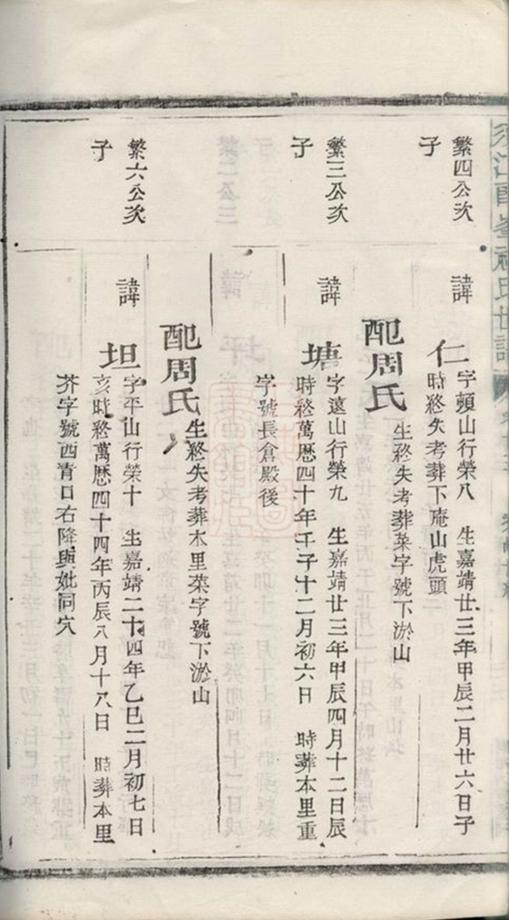 繁四公次
子
諱
仁
字頭山行榮八　生嘉靖廿三年甲辰二月廿六日子
時終失考葬下庵山虎頭
配周氏
生終失考葬菜字號下淤山
繁三公次
子
諱
塘
字遠山行榮九　生嘉靖廿三年甲辰四月十二日辰
時終萬歷四十年壬子十二月初六日　時葬本里重
字號長倉殿後
配周氏
生終失考葬本里菜字號下淤山
繁六公次
子
諱
坦
字平山行榮十　生嘉靖二十四年乙巳二月初七日
亥時終萬歷四十四年丙辰八月十八日　時葬本里
芥字號西青口右降與妣同穴